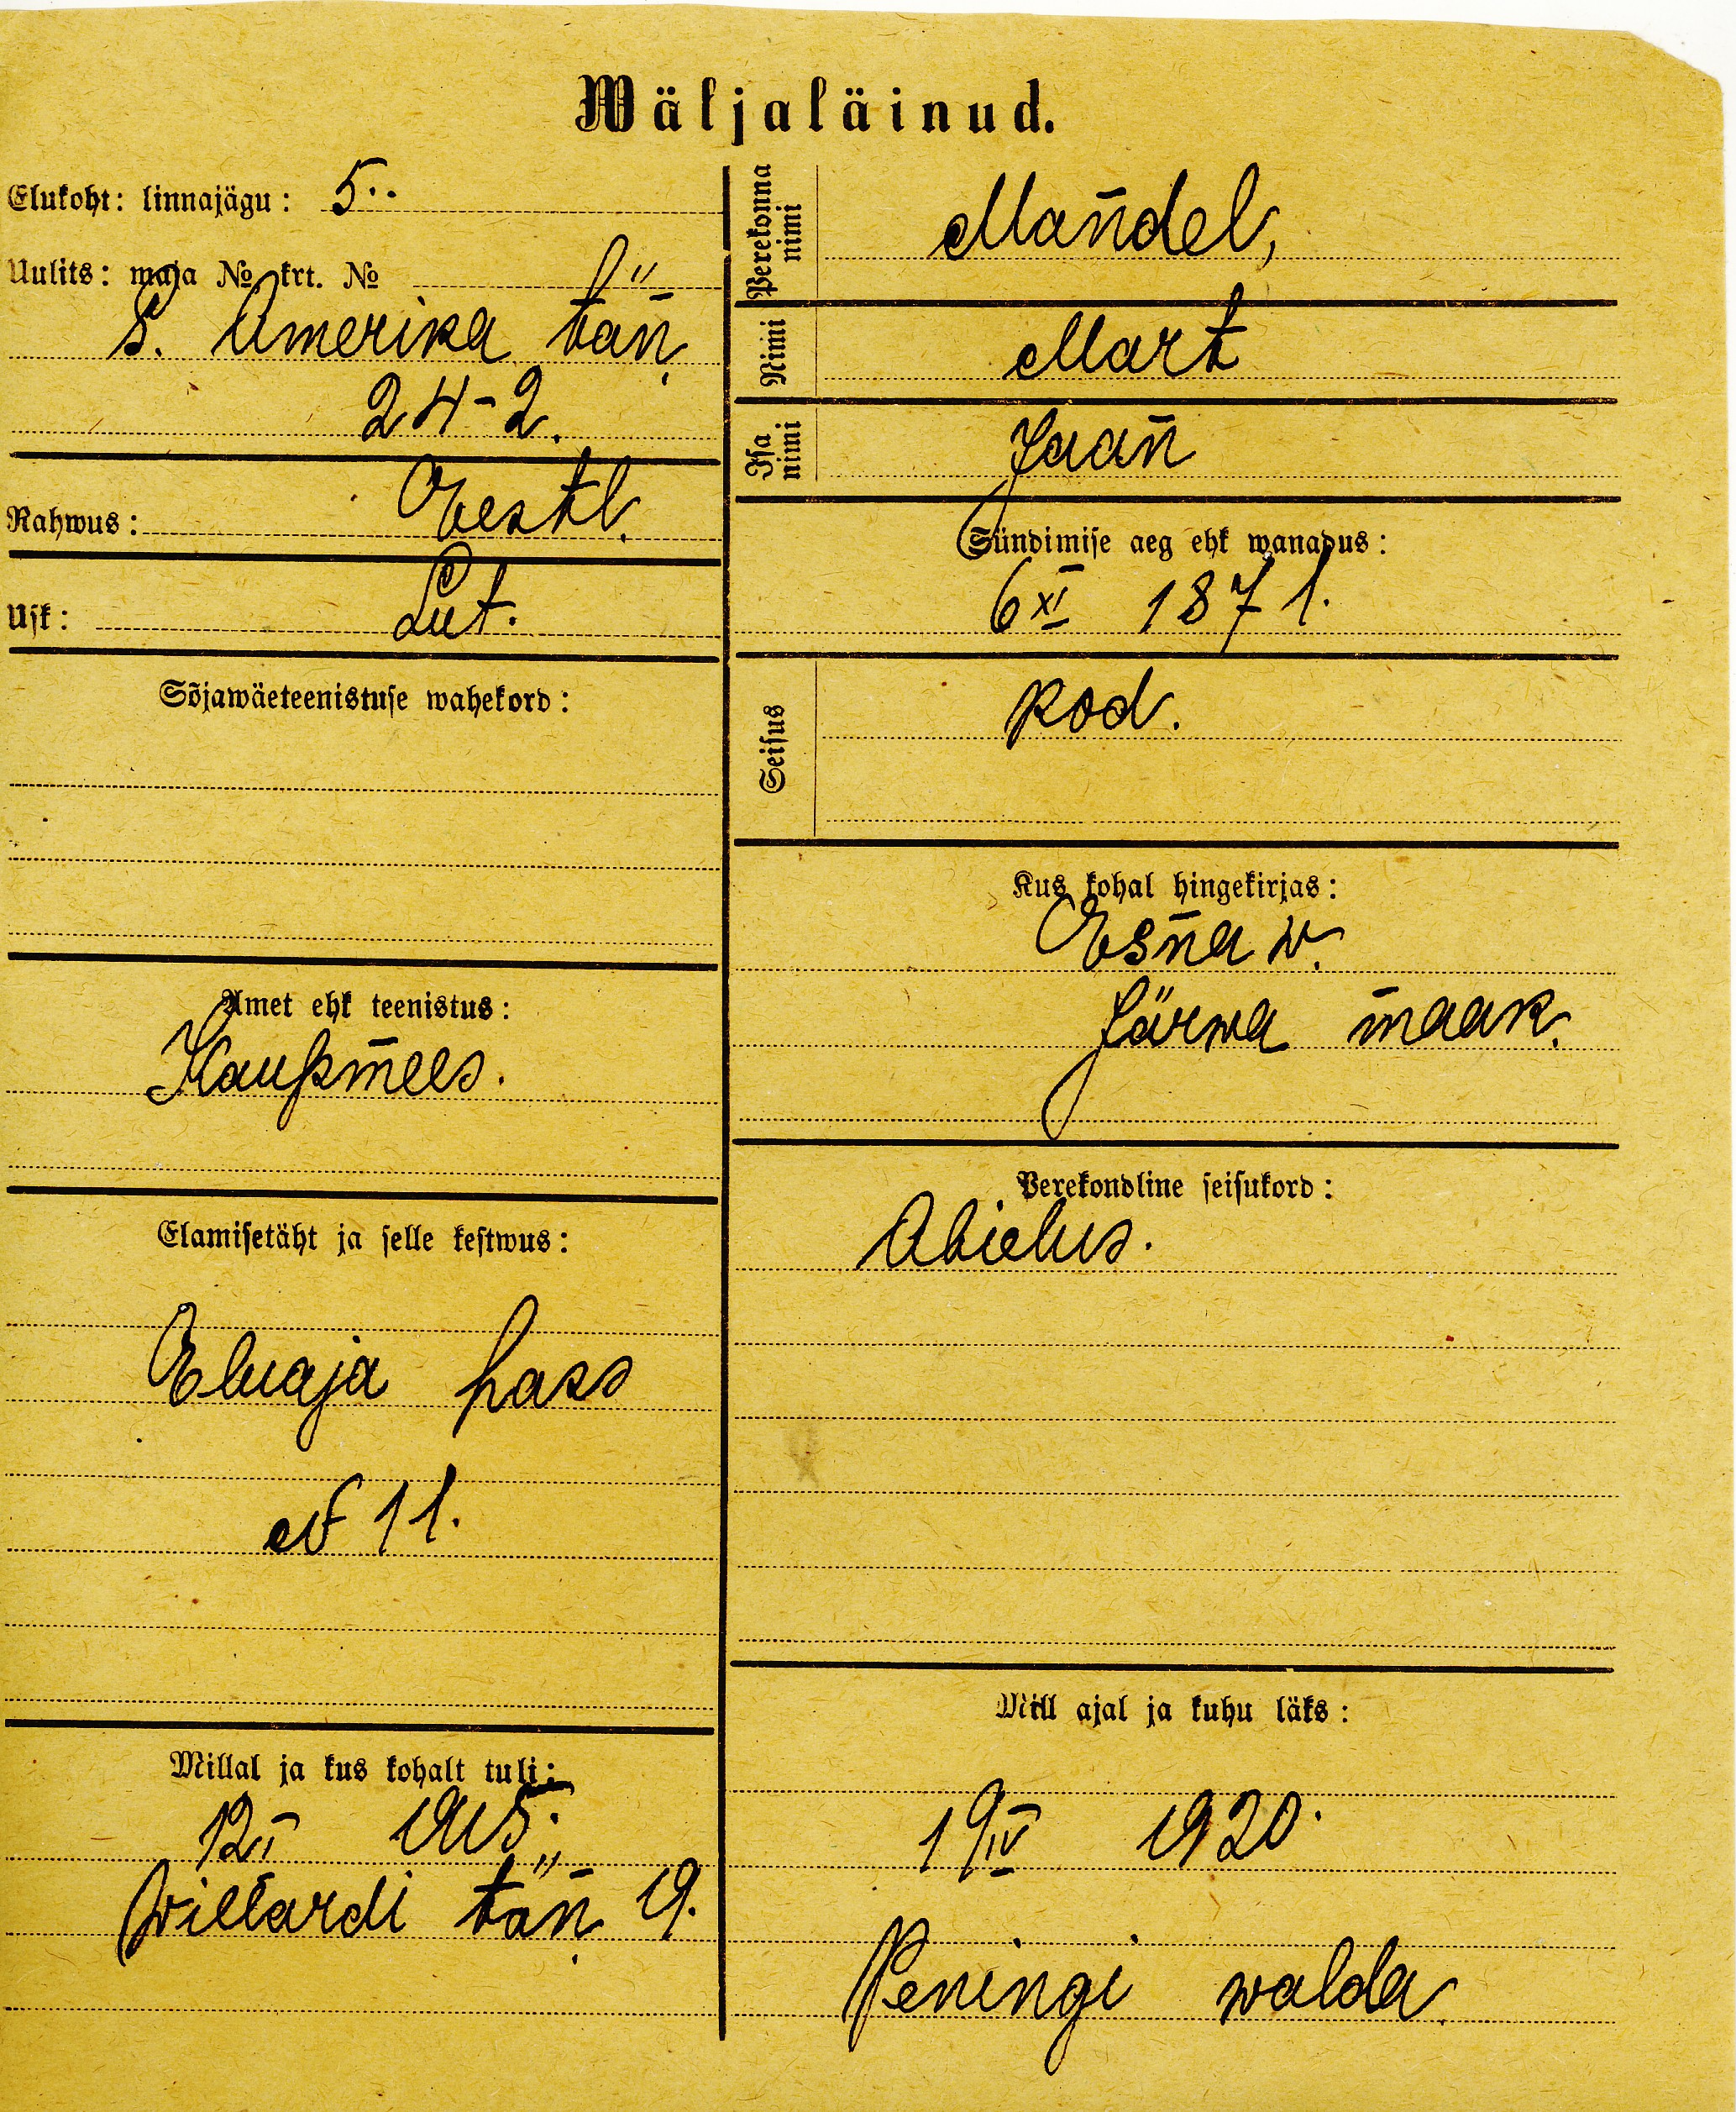 Wäljaläinud.
Elukoht: linnajägu: 5.
Uulits: maja № krt. №
S. Amerika tän.
24-2.
Rahwus: Eestl.
Usk: Lut.
Sõjawäeteenistuse wahekord:
Amet ehk teenistus:
Kaupmees.
Elamisetäht ja selle kestwus:
Eluaja pass
№ 11.
Millal ja kus kohalt tuli:
1915.
Willardi tän 19.
Perekonna nimi Mandel,
Nimi Mart
Isa nimi Jaan
Sündimise aeg ehk wanadus:
6 XI 1871.
Seisus kod.
Kus kohal hingekirjas:
Esna w.
Järwa maak.
Perekondline seisukord:
Abielus.
Mill ajal ja kuhu läks:
19 IV 1920.
Peningi walda